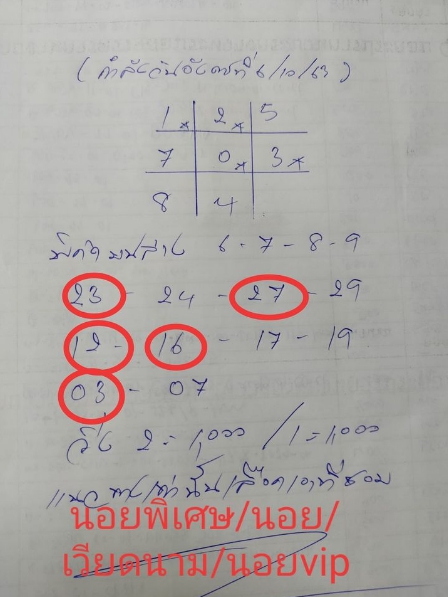 (กำลังวันอังคารที่ 6/10/63)
1 2 5
7 0 3
8 4
6-7-8-9
23 - 24 - 27 - 29
12 - 16 - 17 - 19
03 - 07
วิ่ง 2 = 1,000 / 1 = 1,000
แนวทางเท่านั้นเลือกเอาที่ชอบ
นอยพิเศษ/นอย/
เวียดนาม/นอยvip